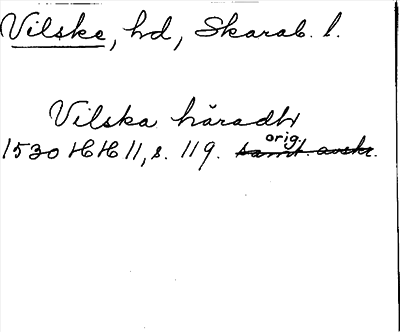 Vilske, hd, Skarab. l.
Vilska häradh
orig.
1530 HH 11, s. 119. samt. avskr.